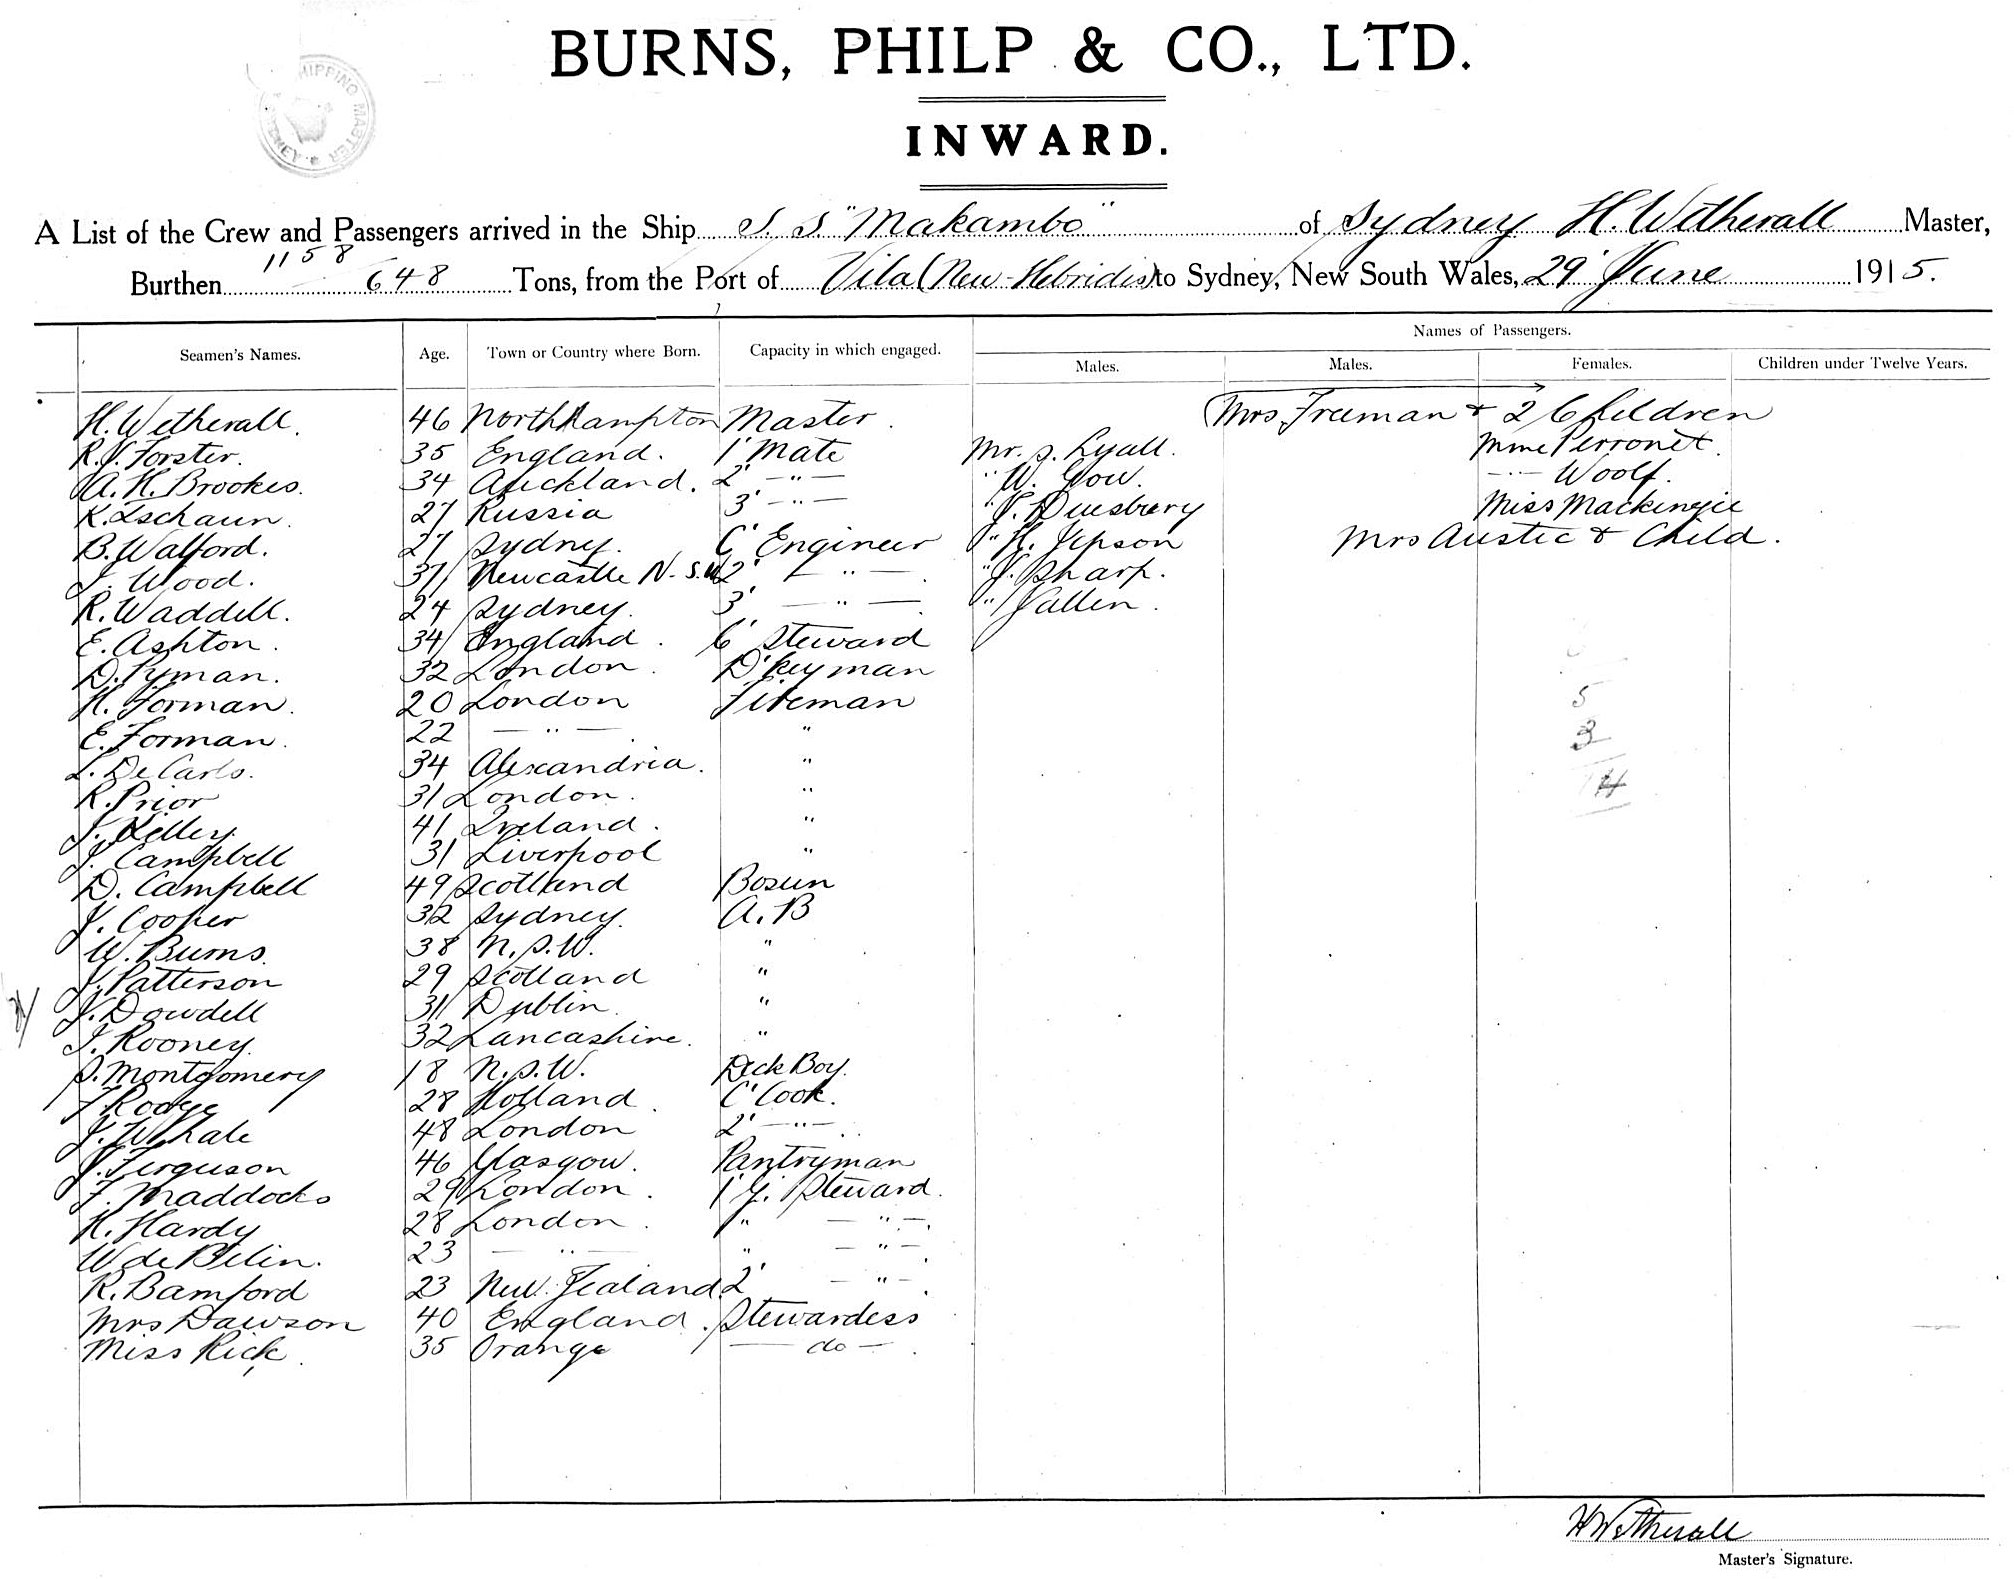 SHIPPING MASTER SYDNEY
BURNS, PHILP & CO., LTD.
INWARD.
A List of the Crew and Passengers arrived in the Ship S.S "Makambo" of Sydney H. Wetherall Master,
1158
Burthen 648 Tons, from the Port of Vila (New-Hebrides) to Sydney, New South Wales, 29' June 1915.
Names of Passengers.
Seamen's Names. Age. Town or Country where Born. Capacity in which engaged. Males. Males. Females. Children under Twelve Years.
H. Wetherall. 46 Northhampton Master. Mrs Freeman & 2 Children
R.J. Forster. 35 England. 1' Mate Mr. S. Lyall. Mme Perronet
A. H. Brookes. 34 Auckland. 2' — " — " W. Gow. — " — Woolf.
K. Zschaun. 27 Russia 3' — " — " J. Duesbury Miss Mackenzie
B. Walford. 27 Sydney. C' Engineer " H. Jepson Mrs Austic & Child.
J. Wood. 31 Newcastle N.S.W 2' — " — " J. Sharp.
R. Waddell. 24 Sydney. 3' — " — " Jallen.
E. Ashton. 34 England. C' Steward
D. Pyman. 32 London. D'keyman
H. Forman. 20 London Fireman
E. Forman. 22 — " — "
L. De Carlo. 34 Alexandria. "
R. Prior 31 London. "
J. Kelley. 41 Ireland. "
J. Campbell 31 Liverpool "
D. Campbell 49 Scotland Bosun
J. Cooper 32 Sydney. A.B
W. Burns. 38 N.S.W. "
J. Patterson 29 Scotland "
J. Dowdell 31 Dublin. "
J. Rooney. 32 Lancashire. "
S. Montgomery 18 N.S.W. Deck Boy.
F Rodge 28 Holland. C' Cook.
J. Whale 48 London 2' — " —
J. Ferguson 46 Glasgow. Pantryman
F. Maddocks 29 London. 1' G. Steward.
H. Hardy 28 London. " — " —
W de Belin. 23 — " — " — " —
R. Bamford 23 New Zealand. 2' — " —
Mrs Dawson 40 England. Stewardess
Miss Rick. 35 Orange — do —
5
3
14
H Wetherall
Master's Signature.